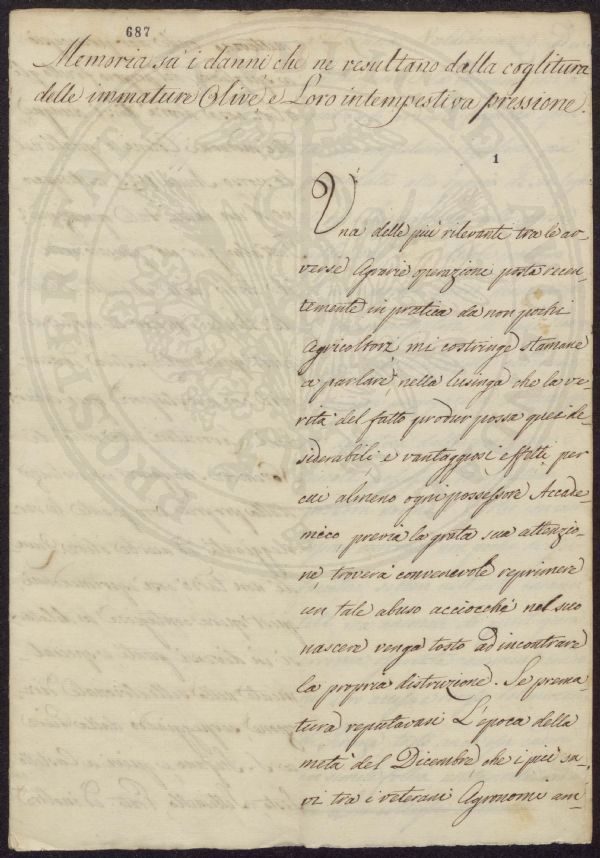 687
Memoria su i danni, che ne resultano dalla coglitura
delle immature Olive, e Loro intempestiva pressione.
1
Una delle più rilevante tra le av-
verse Agrarie operazione posta recen-
temente in pratica da non pochi
Agricoltori, mi costringe stamane
a parlare, nella lusinga che la ve-
rità del fatto produr possa quei de-
siderabili, e vantaggiosi effetti per
cui almeno ogni possessore Accade-
mico previa la grata sua attenzio-
ne, troverà convenevole reprimere
un tale abuso acciocchè nel suo
nascere venga tosto ad incontrare
la propria distruzione. Se prema-
tura reputavasi L'epoca della
metà del Dicembre, che i più sa-
vi tra i veterani Agronomi am-
PROSPERITA